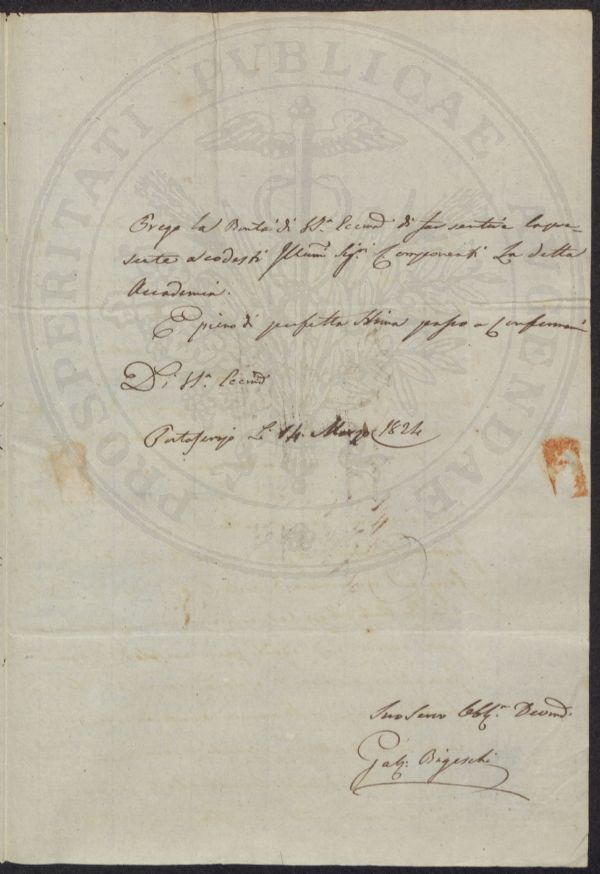 PROSPERITATI PUBLICAE AUGENDAE
Prego la Bontà di V.ª Eccnᵃ di far sentire la pre-
sente a codesti Illumi Sigⁱ Componenti La detta
Accademia.
E pieno di perfetta Stima passo a Confermarmi
Di V.ª Eccnᵃ
Portoferrajo Li 14. Marzo 1824
Suo Servo Obbl.ᵐ
Bigeschi